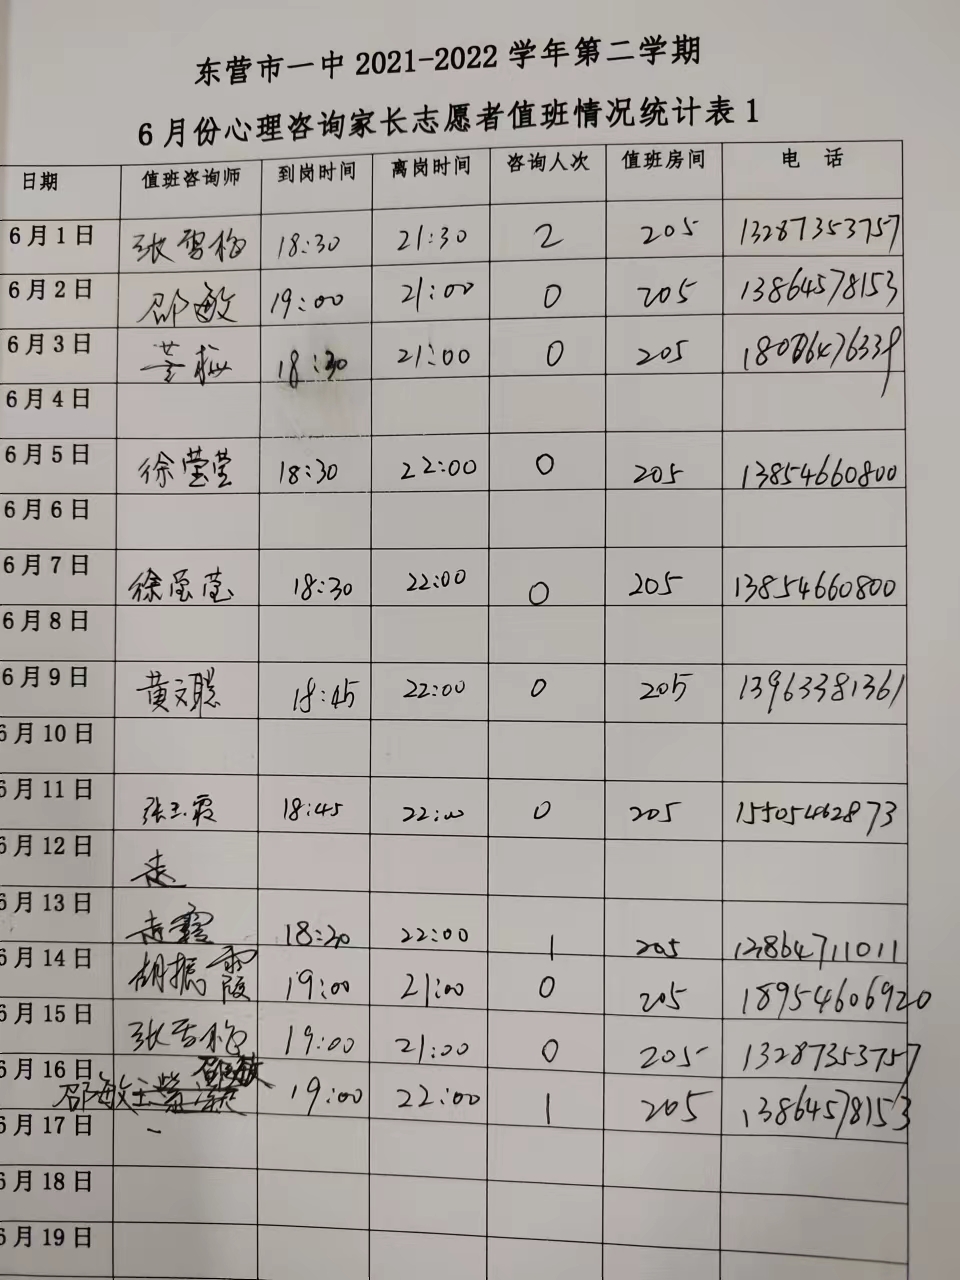 东营市一中 2021-2022 学年第二学期
6 月份心理咨询家长志愿者值班情况统计表 1
日期 值班咨询师 到岗时间 离岗时间 咨询人次 值班房间 电 话
6 月 1 日 张 梅 18:30 21:30 2 205 13287353757
6 月 2 日 邵敏 19:00 21:00 0 205 13864578153
6 月 3 日 18:30 21:00 0 205
6 月 4 日
6 月 5 日 徐莹莹 18:30 22:00 0 205 13854660800
6 月 6 日
6 月 7 日 徐莹莹 18:30 22:00 0 205 13854660800
6 月 8 日
6 月 9 日 黄文聪 18:45 22:00 0 205 13963381361
6 月 10 日
6 月 11 日 张玉霞 18:45 22:00 0 205 15505462873
6 月 12 日
6 月 13 日 18:30 22:00 1 205 13864711011
6 月 14 日 胡振霞 19:00 21:00 0 205 18954606920
6 月 15 日 张 梅 19:00 21:00 0 205 13287353757
6 月 16 日 邵敏 邵敏 19:00 22:00 1 205 13864578153
6 月 17 日
6 月 18 日
6 月 19 日